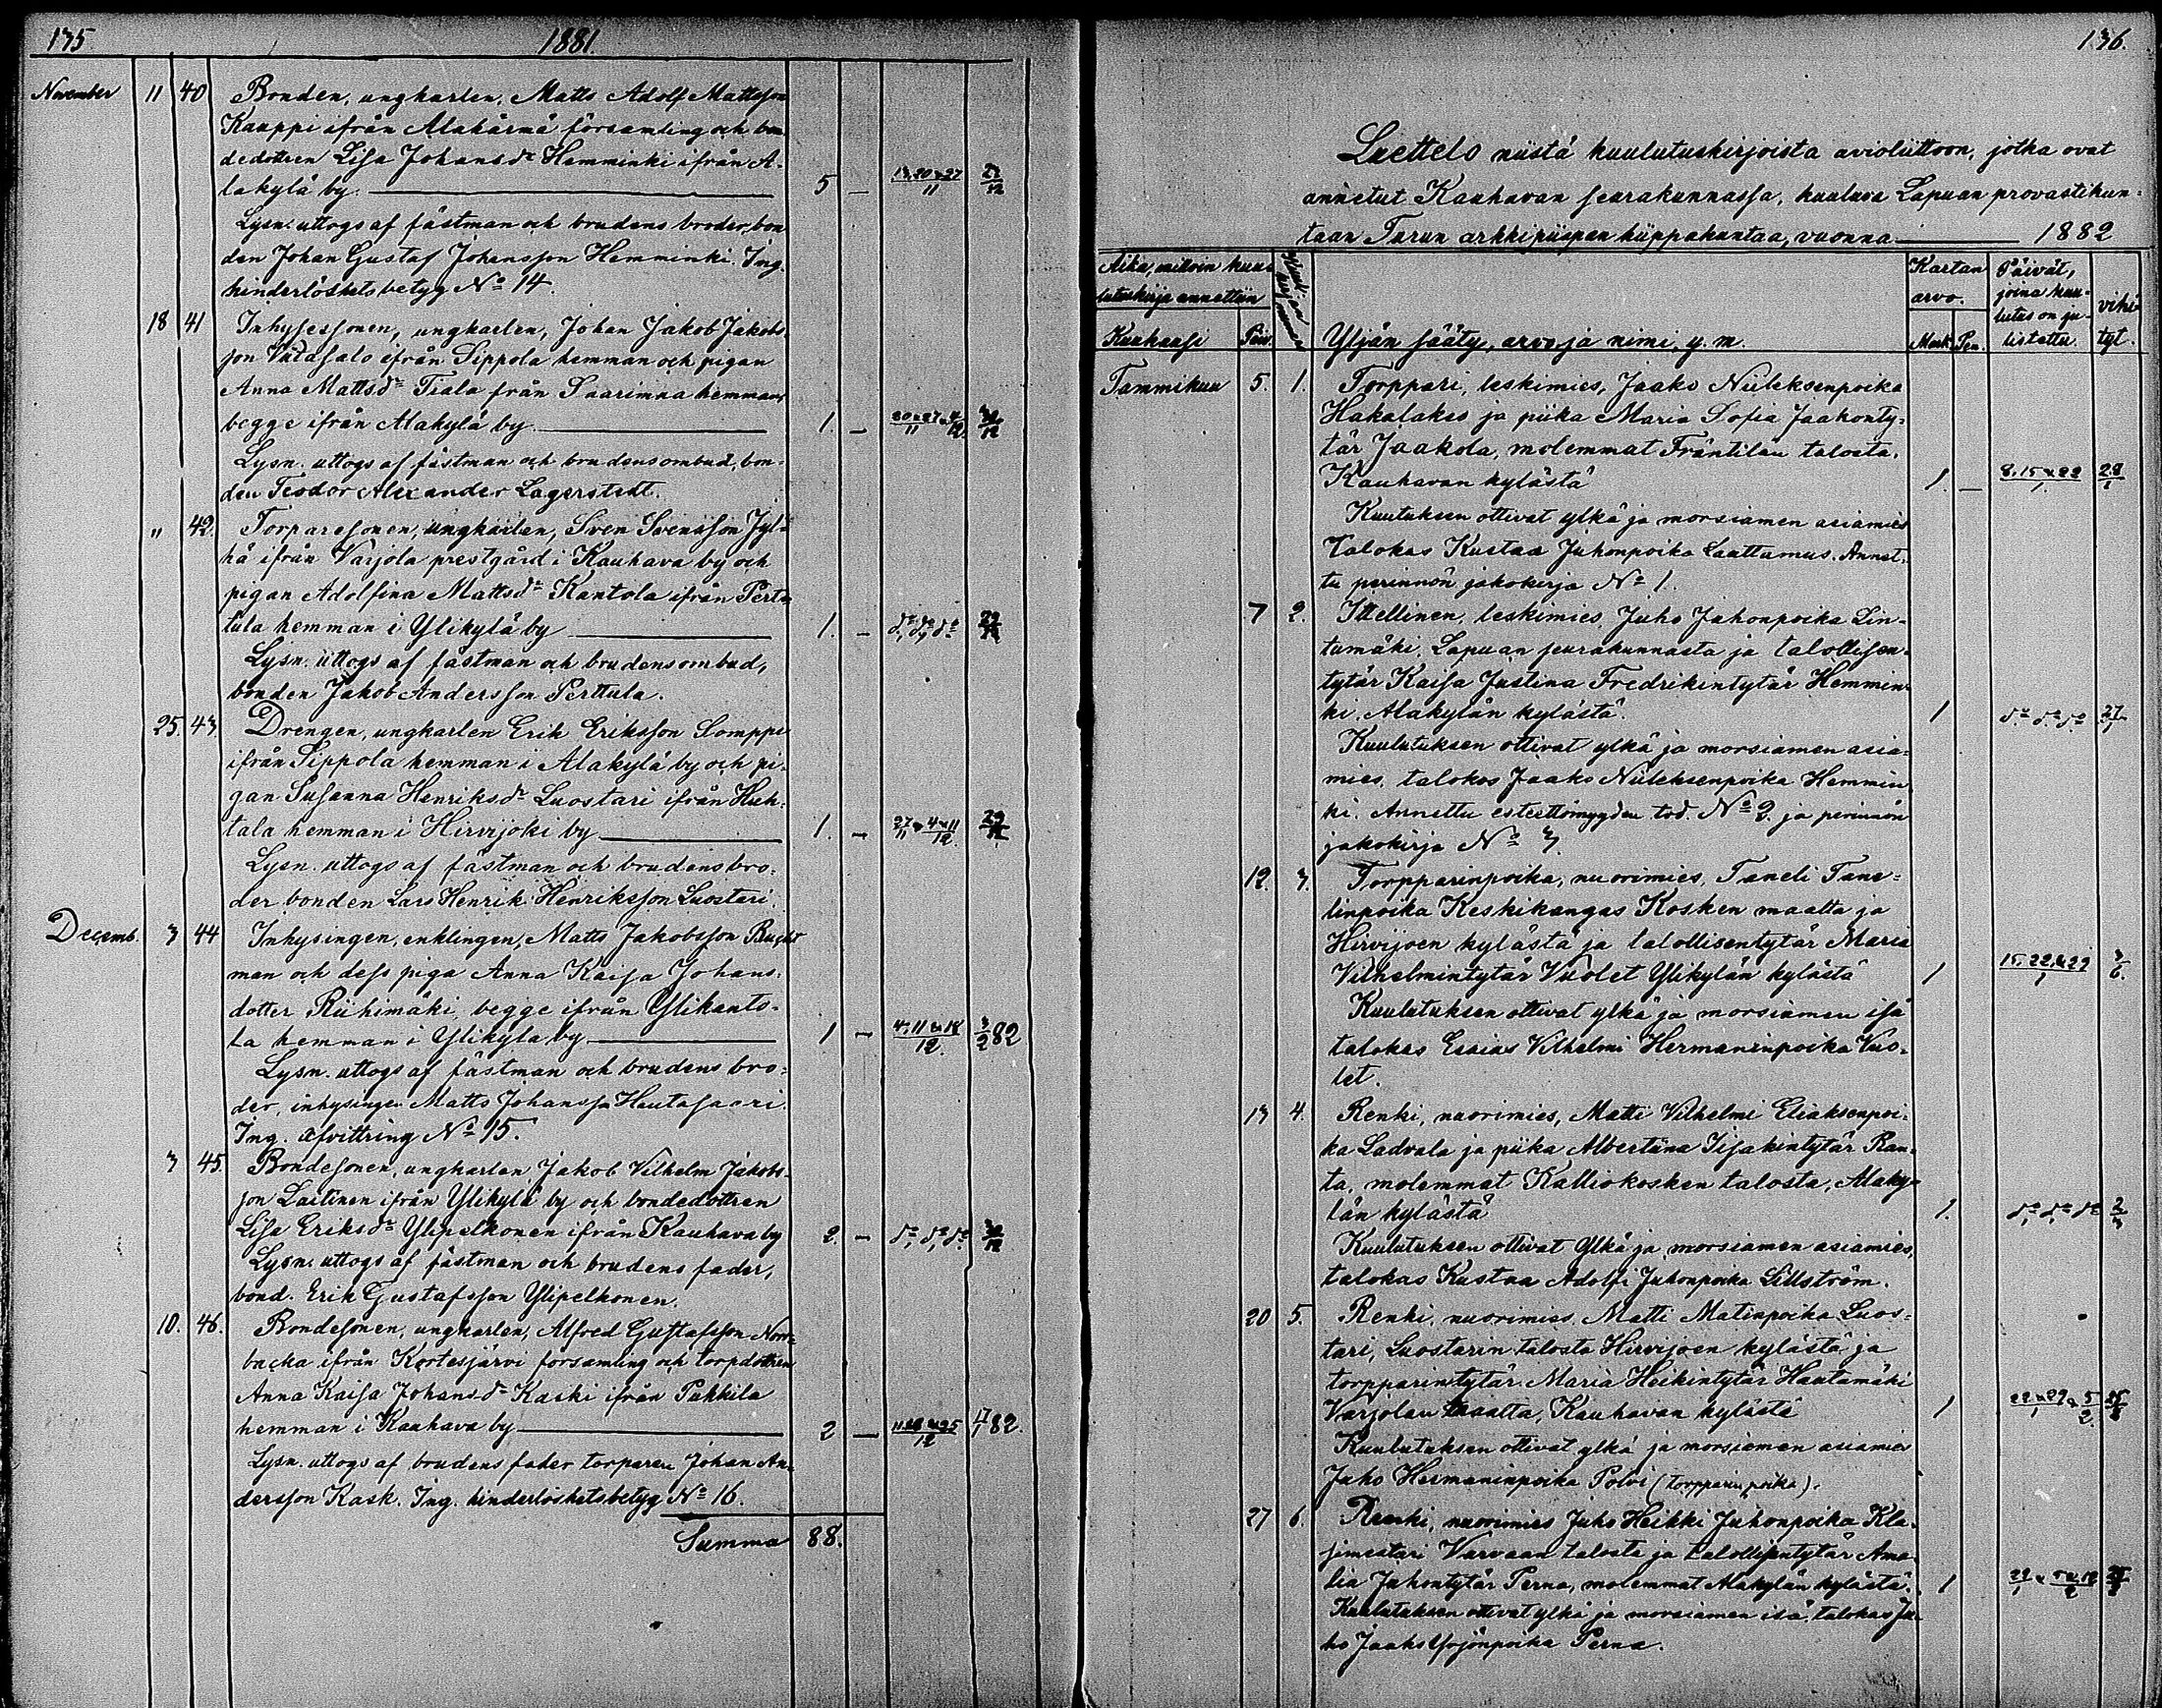 135 1881.
November 11 40 Bonden, ungkarlen, Matts Adolf Mattsson
Kauppi ifrån Alahärmä församling och bon-
dedottren Lisa Johansdr Hemminki ifrån A-
lakylä by. 5 — 13, 20 & 27/11 27/12
Lysn. uttogs af fästman och brudens broder, bon
den Johan Gustaf Johansson Hemminki. Ing.
hinderlöshetsbetyg No 14.
18 41 Inhysessonen, ungkarlen, Johan Jakob Jakobs-
son Viitasalo ifrån Sippola hemman och pigan
Anna Mattsdr Tiala från Saarimaa hemman,
begge ifrån Alakylä by. 1. — 20 & 27/11 & 4/12.
Lysn. uttogs af fästman och brudens ombud, bon-
den Teodor Alexander Lagerstedt.
" 42. Torparesonen, ungkarlen, Sven Svensson Jyl-
hä ifrån Varjola prestgård i Kauhava by och
pigan Adolfina Mattsdr Kantola ifrån Pert-
tula hemman i Ylikylä by 1. — do, do, do
Lysn. uttogs af fästman och brudens ombud,
bonden Jakob Andersson Perttula.
25. 43. Drengen, ungkarlen Erik Eriksson Somppi
ifrån Sippola hemman i Alakylä by och pi-
gan Susanna Henriksdr Luostari ifrån Huh-
tala hemman i Hirvijoki by 1. — 27/11 & 4 & 11/12.
Lysn. uttogs af fästman och brudens bro-
der bonden Lars Henrik Henriksson Luostari.
Decemb. 3 44 Inhysingen, enklingen, Matts Jakobsson
man och dess piga Anna Kaisa Johans-
dotter Riihimäki, begge ifrån Ylikanto-
la hemman i Ylikylä by 1 — 4, 11 & 18/12. 3/2 82
Lysn. uttogs af fästman och brudens bro-
der, inhysingen Matts Johansson Hautasaari.
Ing. afvittring No 15.
3 45. Bondesonen, ungkarlen, Jakob Vilhelm Jakobs-
son Laitinen ifrån Ylikylä by och bondedottren
Lisa Eriksdr Ylipelkonen ifrån Kauhava by 2. — do, do, do.
Lysn. uttogs af fästman och brudens fader,
bond. Erik Gustafsson Ylipelkonen.
10. 46. Bondesonen, ungkarlen, Alfred Gustafsson Norr-
backa ifrån Kortesjärvi församling och torpdottren
Anna Kaisa Johansdr Kaski ifrån Pukkila
hemman i Kauhava by 2 — 11, 18 & 25/12 82.
Lysn. uttogs af brudens fader torparen Johan An-
dersson Kask. Ing. hinderlöshetsbetyg No 16.
Summa 88.
136.
Luettelo niistä kuulutuskirjoista avioliittoon, jotka ovat
annetut Kauhavan seurakunnassa, kuuluva Lapuan provastikun-
taan Turun arkkipiispan hiippakuntaa, vuonna 1882
Aika, milloin kuu- Kartan Päivät,
lutuskirja annettiin arvo. joina kuu-
lutus on ju- vihi-
Kuukausi Päiv. Yljän sääty, arvo ja nimi, y. m. Mark. Pen. listettu. tyt.
Tammikuu 5. 1. Torppari, leskimies, Jaako Niileksenpoika
Hakalakso ja piika Maria Sofia Jaakonty-
tär Jaakola, molemmat Fräntilän talosta,
Kauhavan kylästä 1. — 8, 15 & 22/1. 28/1
Kuutuksen ottivat ylkä ja morsiamen asiamies
Talokas Kustaa Juhonpoika Luuttumus. Annet-
tu perinnön jakokirja No 1.
7 2. Ittellinen, leskimies, Juho Juhonpoika Lin-
tumäki, Lapuan seurakunnasta ja talollisen-
tytär Kaisa Justina Fredrikintytär Hemmin-
ki, Alakylän kylästä. 1 do, do, do
Kuulutuksen ottivat ylkä ja morsiamen asia-
mies, talokas Jaako Niileksenpoika Hemmin
ki. Annettu esteettömyyden tod. No 2. ja perinnön
jakokirja No 3.
12. 3. Torpparinpoika, nuorimies, Taneli Tane-
linpoika Keskikangas Kosken maalta ja
Hirvijoen kylästä ja talollisentytär Maria
Vilhelmintytär Vuolet Ylikylän kylästä 1 15, 22 & 29/1 3/6.
Kuulutuksen ottivat ylkä ja morsiamen isä
talokas Esaias Vilhelmi Hermaninpoika Vuo-
let.
13 4. Renki, nuorimies, Matti Vilhelmi Eliaksenpoi-
ka Ladvala ja piika Albertiina Iisakintytär Ran-
ta, molemmat Kalliokosken talosta, Alaky-
län kylästä 1. do, do, do 2/3
Kuulutuksen ottivat Ylkä ja morsiamen asiamies,
talokas Kustaa Adolfi Juhonpoika Sillström.
20 5. Renki, nuorimies, Matti Matinpoika Luos-
tari, Luostarin talosta Hirvijoen kylästä ja
torpparintytär Maria Heikintytär Hautamäki
Varjolan maalta, Kauhavan kylästä 1 22 & 29/1 & 5/2.
Kuulutuksen ottivat ylkä ja morsiamen asiamies
Juho Hermaninpoika Polvi (torpparin poika).
27 6. Renki, nuorimies Juho Heikki Juhonpoika Kla-
simestari Varvaan talosta ja talollisentytär Ama-
lia Juhontytär Perna, molemmat Alakylän kylästä. 1 29/1 & 5 & 12/2
Kuulutuksen ottivat ylkä ja morsiamen isä, talokas Ju-
ho Jaako Yrjönpoika Perna.